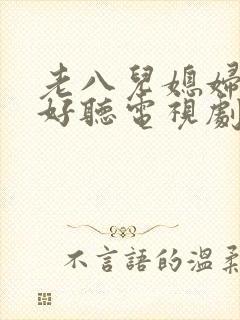 老八兒媳婦
好聽電視劇
不言語的溫柔